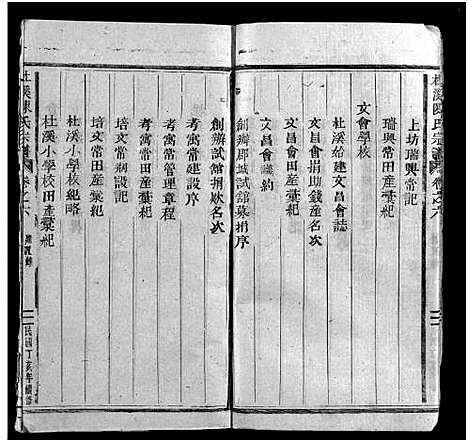 杜溪陳氏宗譜 卷之六
上坊瑞興常記
瑞興常田產彙紀
文會學校
杜溪始建文昌會誌
文昌會捐助錢產名次
文昌會田產彙紀
文昌會議約
創辦郡城試館募捐序
創辦試館捐欵名次
考寓常建設序
考寓常管理章程
考寓常田產彙紀
培文常剏設記
培文常田產彙紀
杜溪小學校紀略
杜溪小學校田產彙紀
杜溪陳氏宗譜 卷之六
民國丁亥年續修